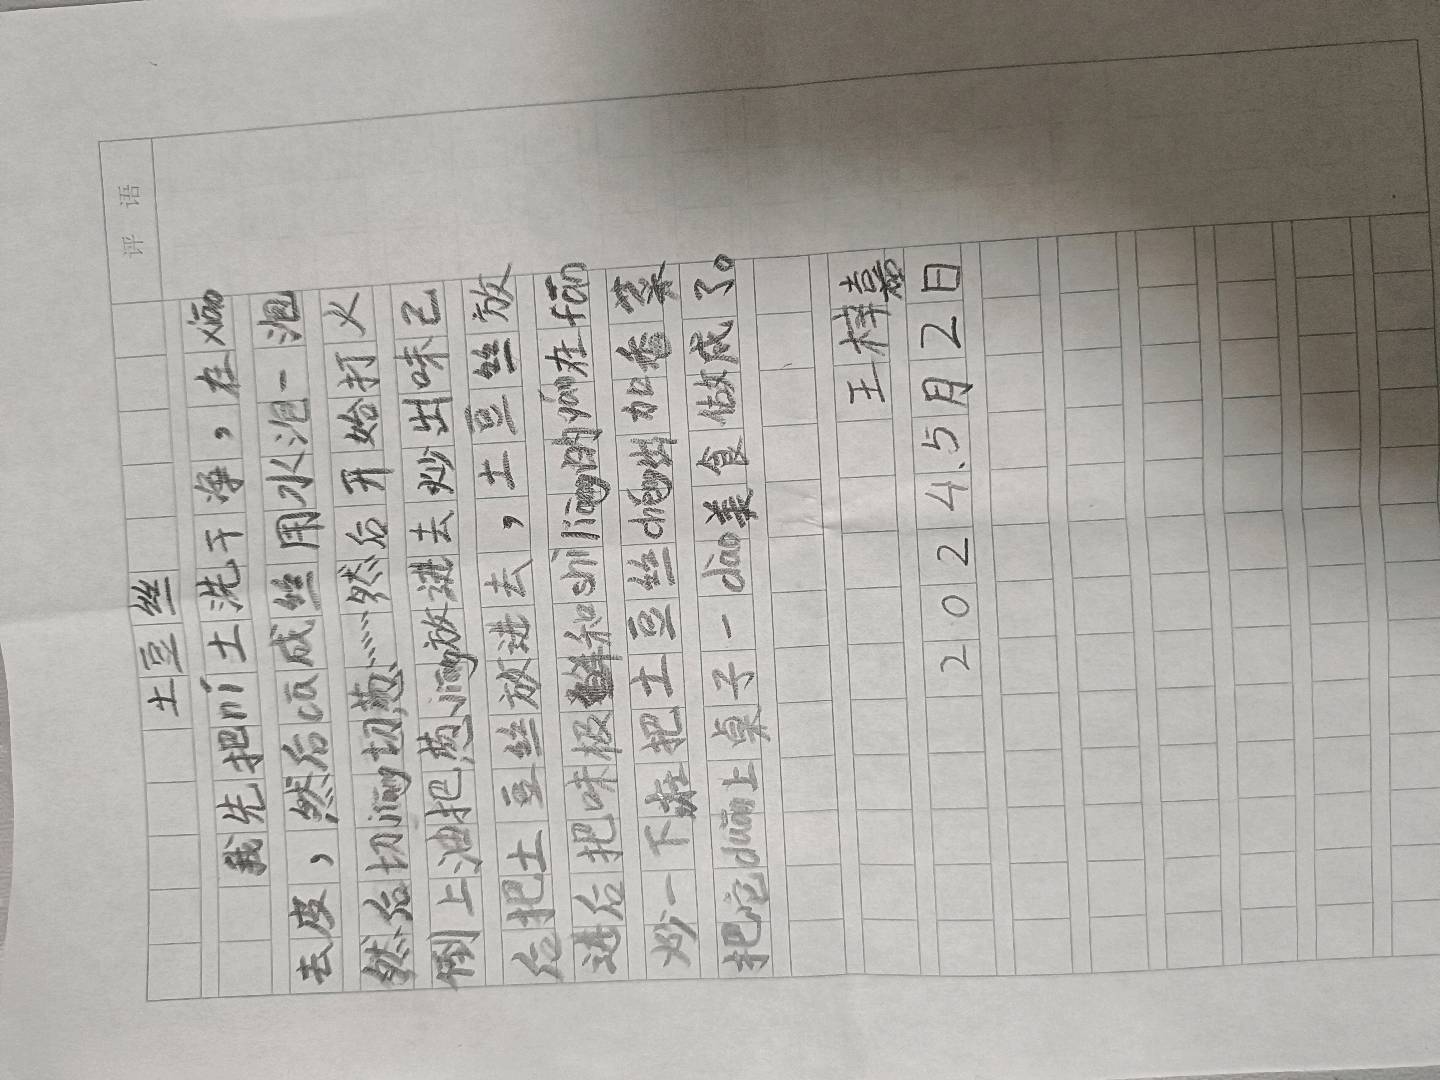 评 语
土豆丝
我先把ní土洗干净，在xiāo
去皮，然后cā成丝用水泡泡一泡
然后切jiāng切葱……然后开始打火
倒上油把葱jiāng放进去炒出味已
后把土豆丝放进去，土豆丝放
进后把味极鲜和shí liàng的yán在fān
炒一下在把土豆丝chéng出加香菜
把它duān上桌子一dào美食做成了。
王梓嘉
2024.5月2日